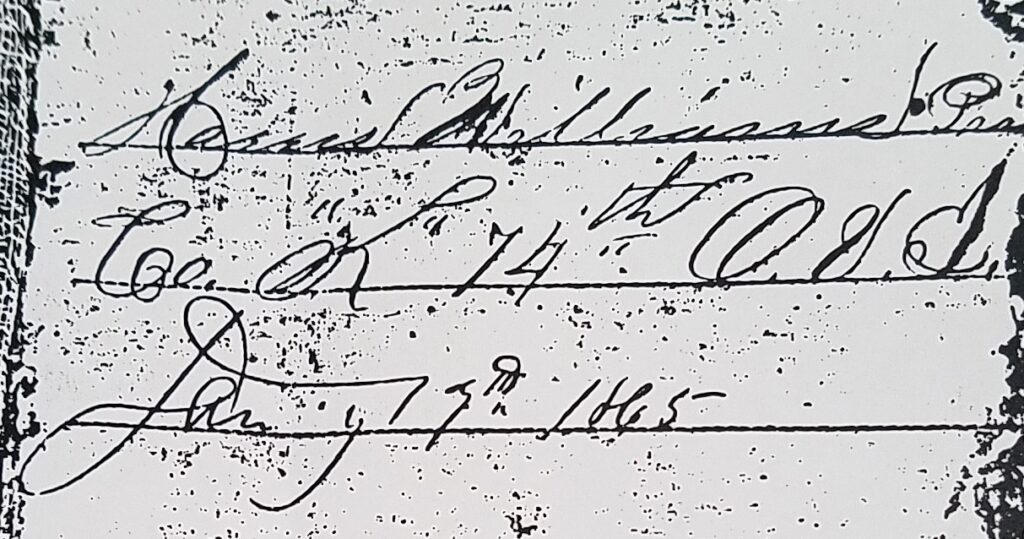 Williams Pri
Co. "K" 74th O. V. I.
Jany 9th 1865